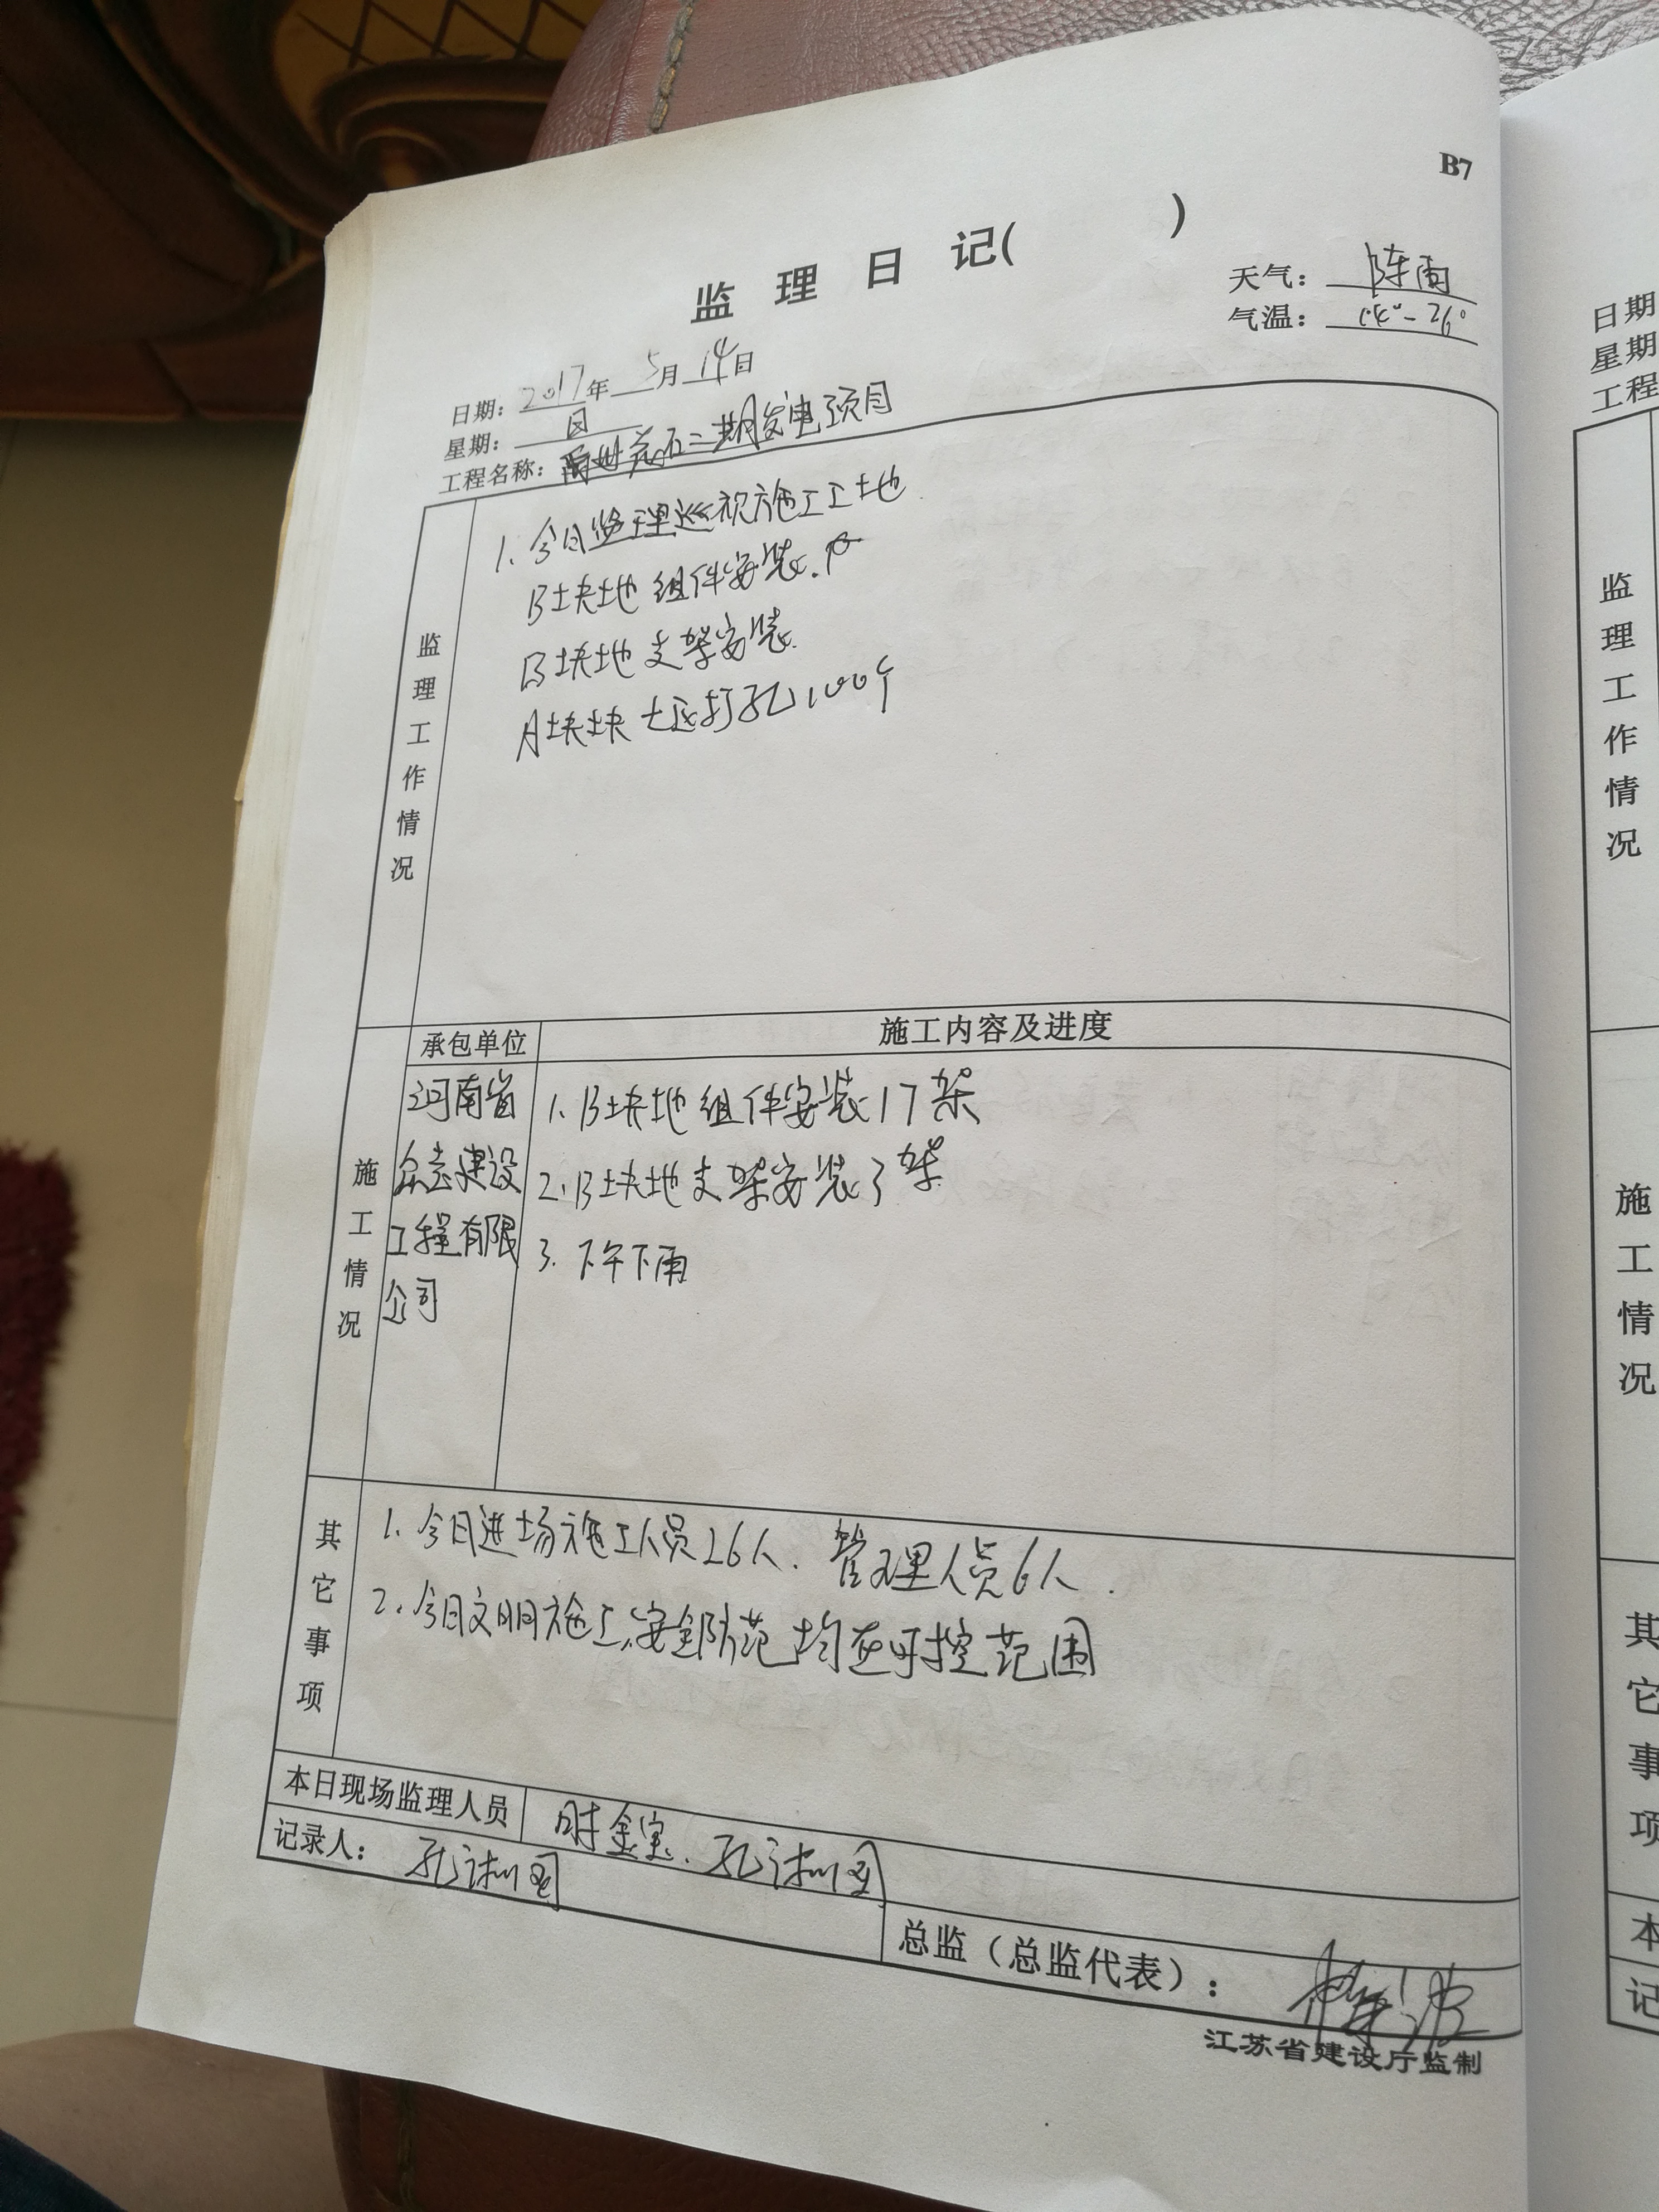 B7
监理日记( )
天气：阵雨
气温：14°-26°
日期：2017年5月14日
星期：日
工程名称：禹州苌石二期发电项目
监理工作情况
1、今日监理巡视施工工地
B块地组件安装.
B块地支架安装.
A块块 打孔100个
承包单位 施工内容及进度
施工情况
河南省
众志建设
工程有限
公司
1、B块地组件安装17架
2、B块地支架安装3架
3、下午下雨
其它事项
1、今日进场施工人员26人、管理人员6人.
2、今日文明施工、安全防范均在可控范围
本日现场监理人员 金宝、孔
记录人：孔
总监（总监代表）：
江苏省建设厅监制
日期
星期
工程
监理工作情况
施工情况
其它事项
本
记